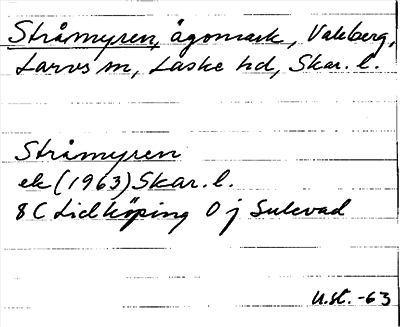 Stråmyren, ägomark, Valeberg,
Larvs sn, Laske hd, Skar. l.
Stråmyren
ek (1963) Skar. l.
8C Lidköping 0 j Sulevad
U.st. -63